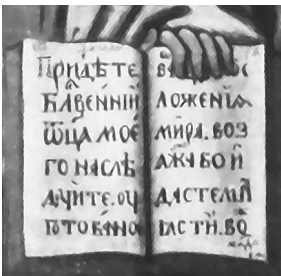 ПРИДѢТЕ
БЛ҃ВЕННЇЙ
Ѿ҃ЦА МОЕ
ГО НАСЛѢ
ДꙊЙТЕ. ОУ
ГОТОВАНО
ЛОЖЕНІѦ
МИРА. ВОЗ
АЖА БО Й
ДАСТЕ МИ
ꙖСТИ. ВО